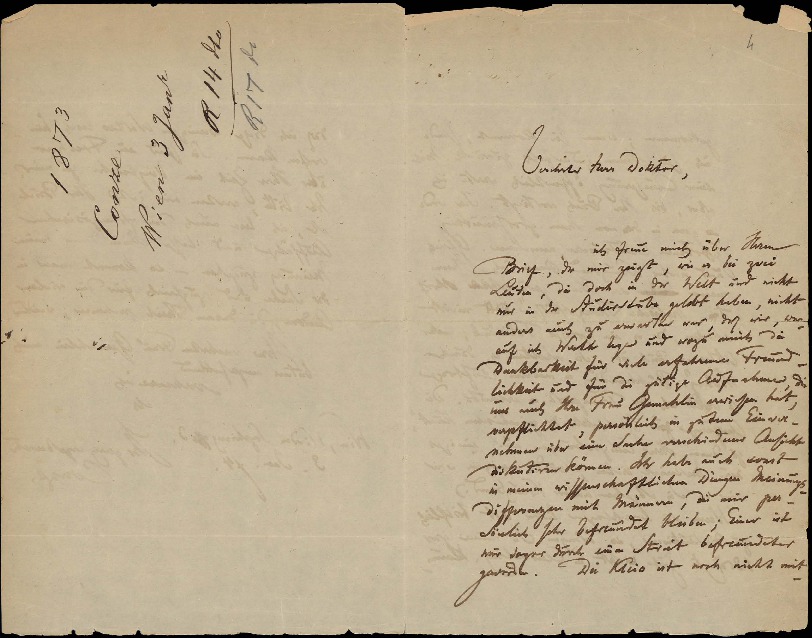 1873
Conze
Wien 3 Janr
R 14 do
R 17 do
4
Verehrter Herr Doktor,
ich freue mich über Ihren
Brief, der mir zeigt, wie es bei zwei
Leuten, die doch in der Welt und nicht
nur in der Studierstube gelebt haben, nicht
anders auch zu erwarten war, daß wir, wor-
auf ich Werth lege und wozu mich die
Dankbarkeit für viele erfahrene Freund-
lichkeit und für die gütige Aufnahme, die
uns auch Ihre Frau Gemahlin erwiesen hat,
verpflichtet, persönlich in gutem Einver-
nehmen über eine Sache verschiedener Ansicht
diskutiren können. Ich habe auch sonst
in meinen wissenschaftlichen Dingen Meinungs-
differenzen mit Männern, die mir per-
sönlich sehr befreundet bleiben; Einer ist
mir sogar durch einen Streit befreundeter
geworden. Die Klio ist noch nicht mit-